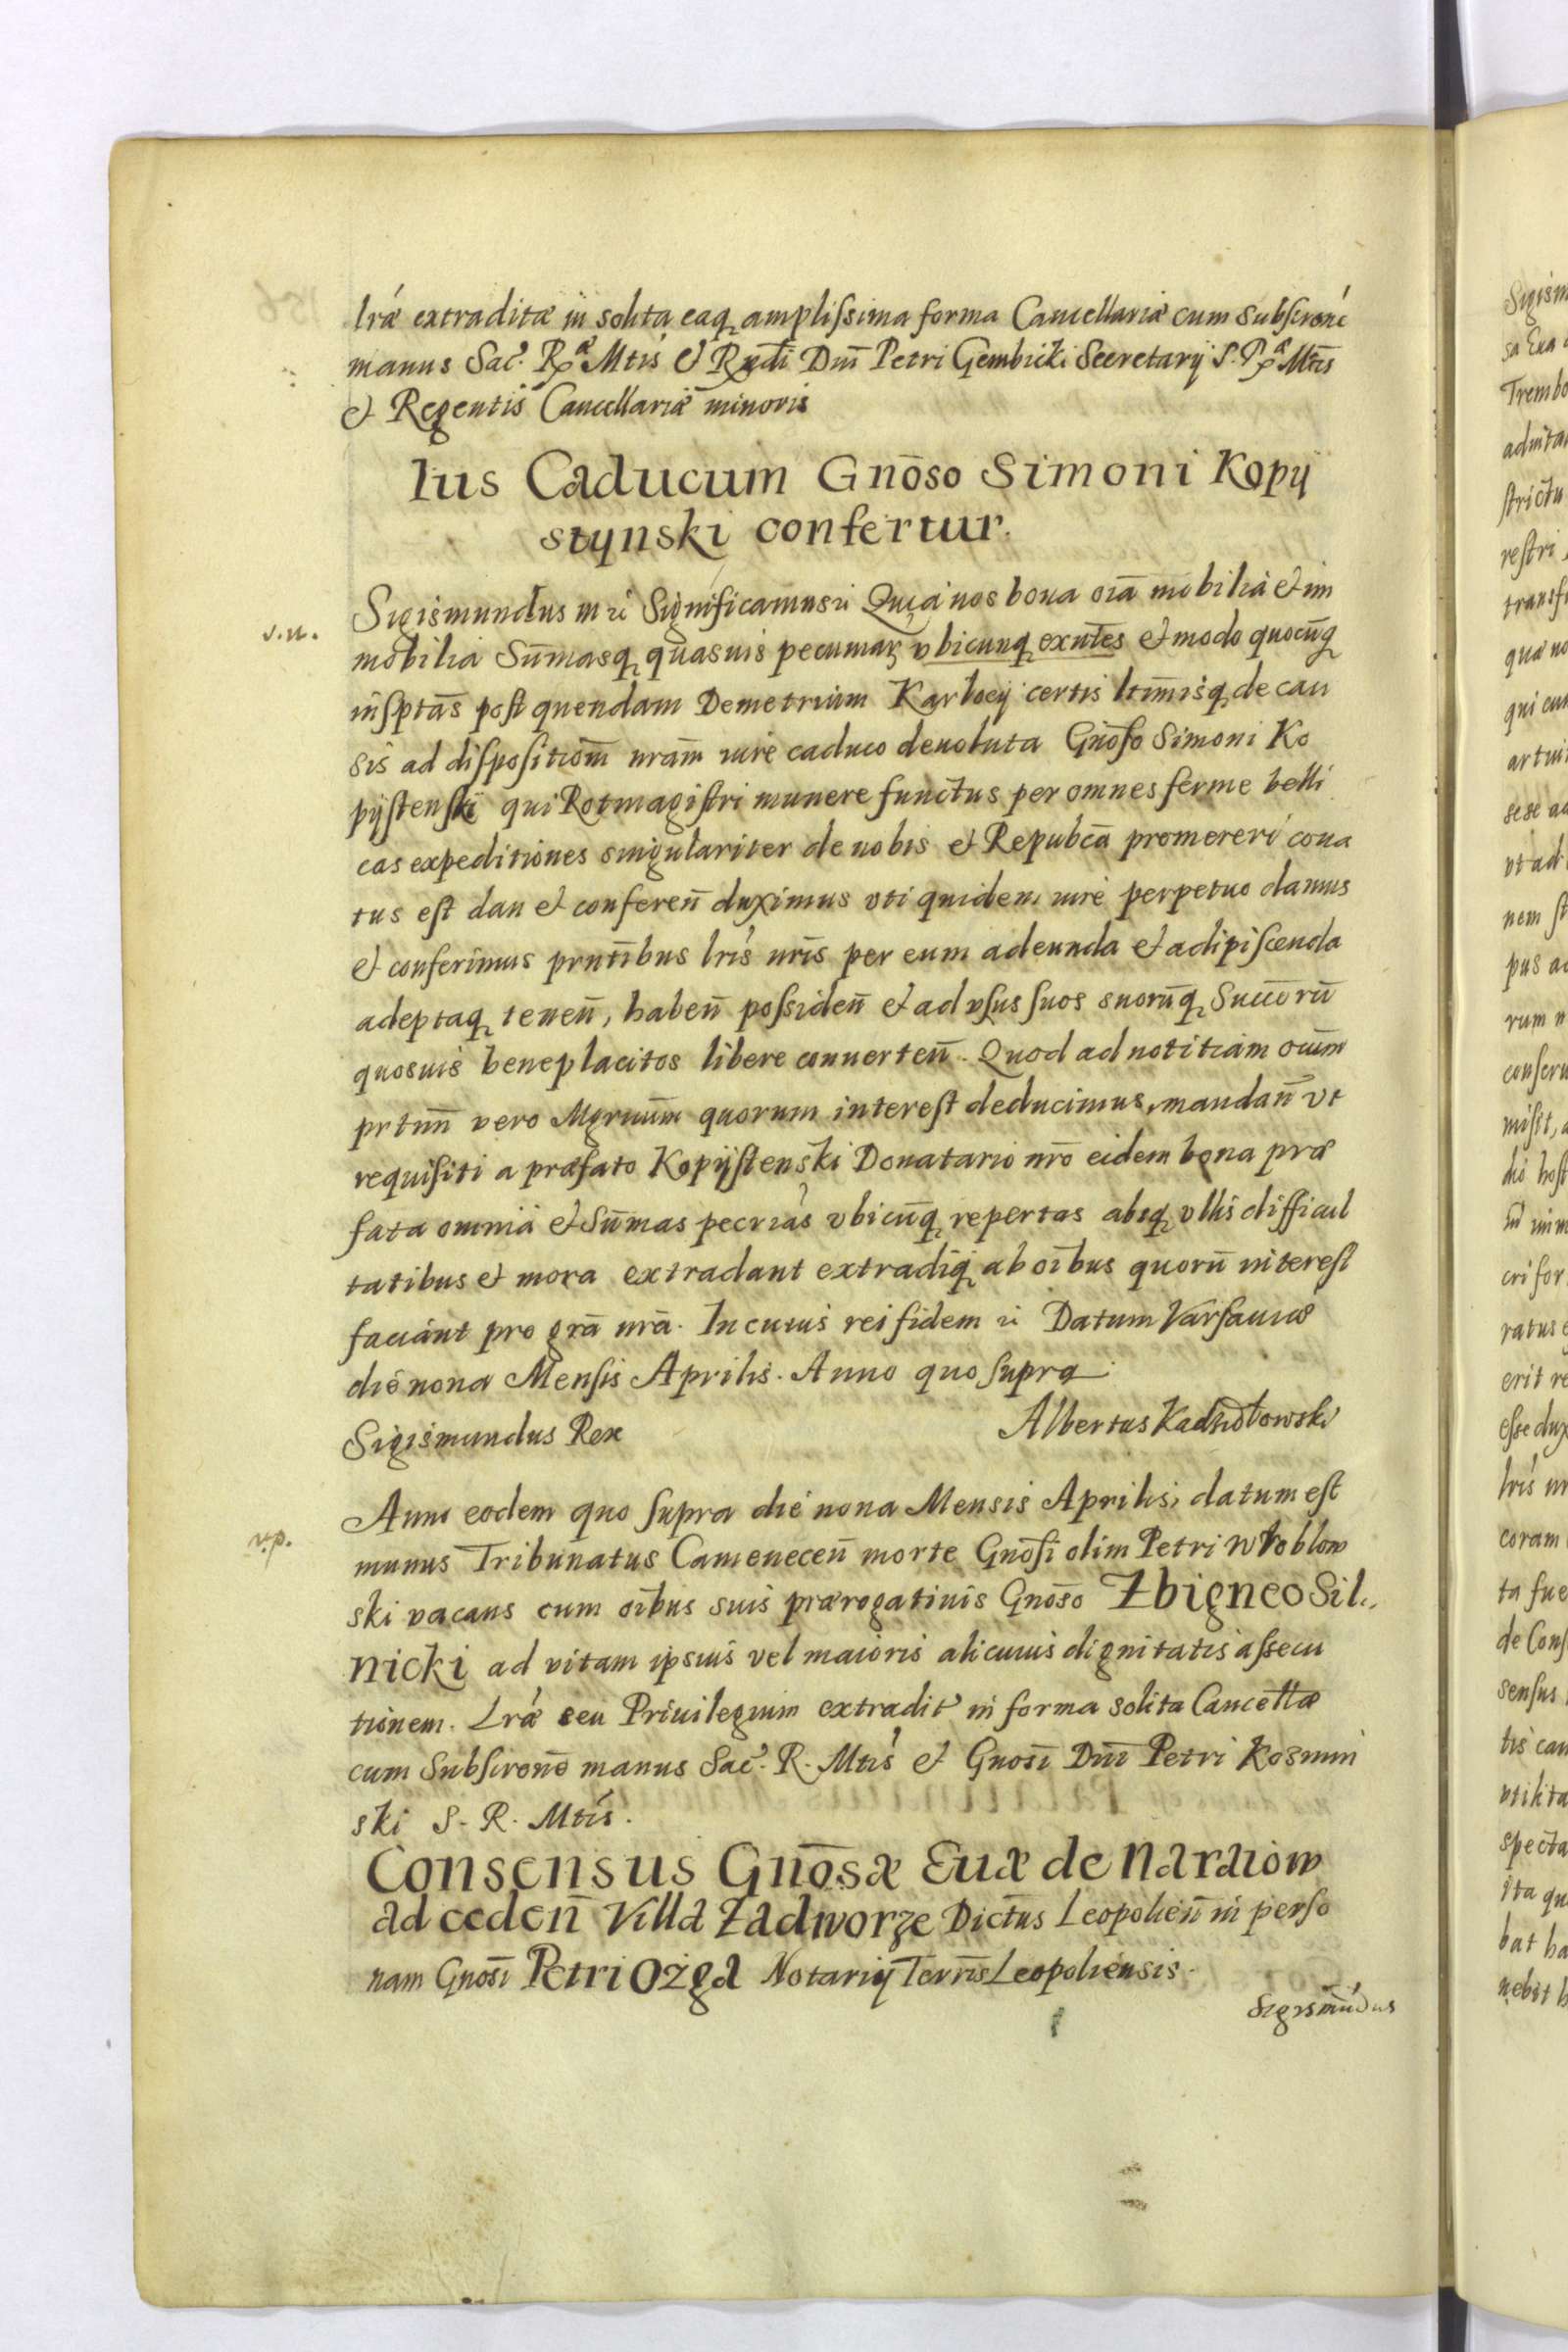 lræ extraditæ in solita eaq amplissima forma Cancellariæ cum subscrone
manus Sac. Rx Mtis et Rxdi Dni Petri Gembicki Secretarij S. Rx Mtis
et Regentis Cancellariæ minoris
Ius Caducum Gnoso Simoni Kopy
stynski confertur.
v.n.
Sigismundus Significamus Quia nos bona oia mobilia et im
mobilia Sumasq quasuis pecuniar vbicunq exntes et modo quocunq
inscptas post quendam Demetrium certis ltimisq de cau
sis ad dispositiom nram iure caduco deuoluta Gnoso Simoni Ko
pijstenski qui Rotmagistri munere functus per omnes ferme belli
cas expeditiones singulariter de nobis et Repubca promereri cona
tus est dan et conferen duximus vti quidem iure perpetuo damus
et conferimus prntibus lris nris per eum adeunda et adipiscenda
adeptaq tenen, haben possiden et ad vsus suos suorūq Succorū
quosuis beneplacitos libere conuerten. Quod ad notitiam oium
prtim vero quorum interest deducimus, mandan vt
requisiti a præfato Kopijstenski Donatario nro eidem bona præ
fata omnia et Sumas pecrias vbicūq repertas absq vllis difficul
tatibus et mora extradant extradiq ab oibus quorū interest
faciant pro gra nra. In cuius rei fidem Datum Varsauiæ
die nona Mensis Aprilis. Anno quo supra
Sigismundus Rex
Albertus Kadzidłowski
v.p.
Anno eodem quo supra die nona Mensis Aprilis, datum est
munus Tribunatus Camenecen morte Gnosi olim Petri
ski vacans cum oibus suis prærogatiuis Gnoso Zbigneo Sil
nicki ad vitam ipsius vel maioris alicuius dignitatis assecu
tionem. Lræ seu Priuilegium extradit in forma solita Cancellæ
cum Subscrone manus Sac. R. Mtis et Gnosi Dni Petri Kosmin
ski S. R. Mtis.
Consensus Gnosæ Euæ de Naraiow
ad ceden Villa Zadworze Dictus Leopolien in perso
nam Gnosi Petri Ożga Notarij Terris Leopoliensis.
Sigismūdus